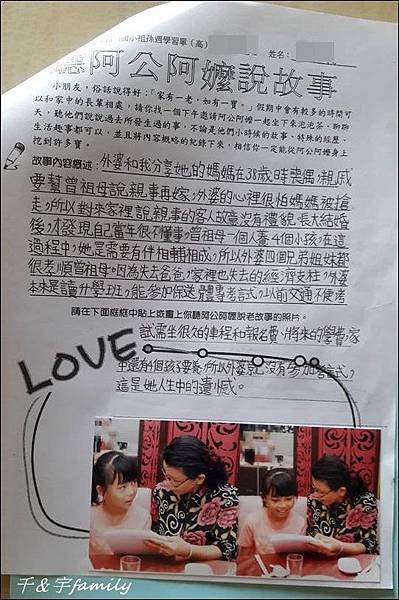 國小祖孫週學習單（高）
姓名：
聽阿公阿嬤說故事
小朋友，俗話說得好：「家有一老，如有一寶。」假期中會有較多的時間可
以和家中的長輩相處，請你找一個下午邀請阿公阿嬤一起坐下來泡泡茶、聊聊
天，聽他們說說過去所發生過的事，不論是他們小時候的故事、特殊的經歷、
生活趣事都可以，並且將內容概略的紀錄下來，相信你一定能從阿公阿嬤身上
挖到許多寶。
故事內容概述：外婆和我分享她的媽媽在38歲時喪偶，親戚
要幫曾祖母說親事再嫁，外婆的心裡很怕媽媽被搶
走，所以對來家裡說親事的客人故意沒有禮貌，長大結婚
後，才發現自己當年很不懂事，曾祖母一個人養4個小孩，在這
過程中，她是需要有伴相輔相成，所以外婆四個兄弟姐妹都
很孝順曾祖母。因為失去爸爸，家裡也失去的經濟支柱，外婆
本來是讀升學班，能參加保送體專考試，以前交通不便，考
請在下面庭庭中貼上或畫上你聽阿公阿嬤說老故事的照片。
試需坐很久的車程和報名費、將來的學費，家
LOVE
中還有4個孩子要養，所以外婆就沒有參加考試，
這是她人生中的遺憾。
千&宇family